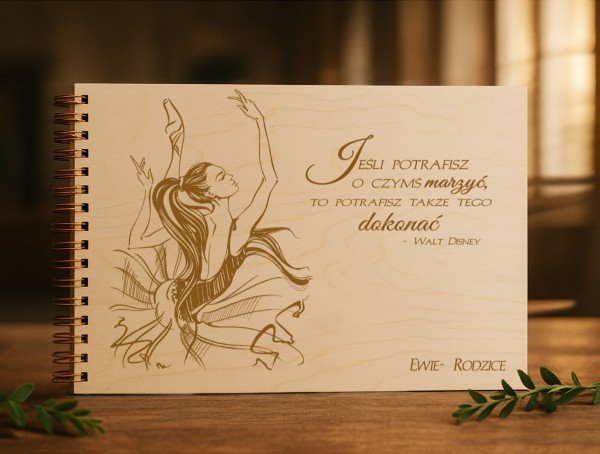 Jeśli potrafisz
o czymś marzyć,
to potrafisz także tego
dokonać
- Walt Disney
Ewie- Rodzice